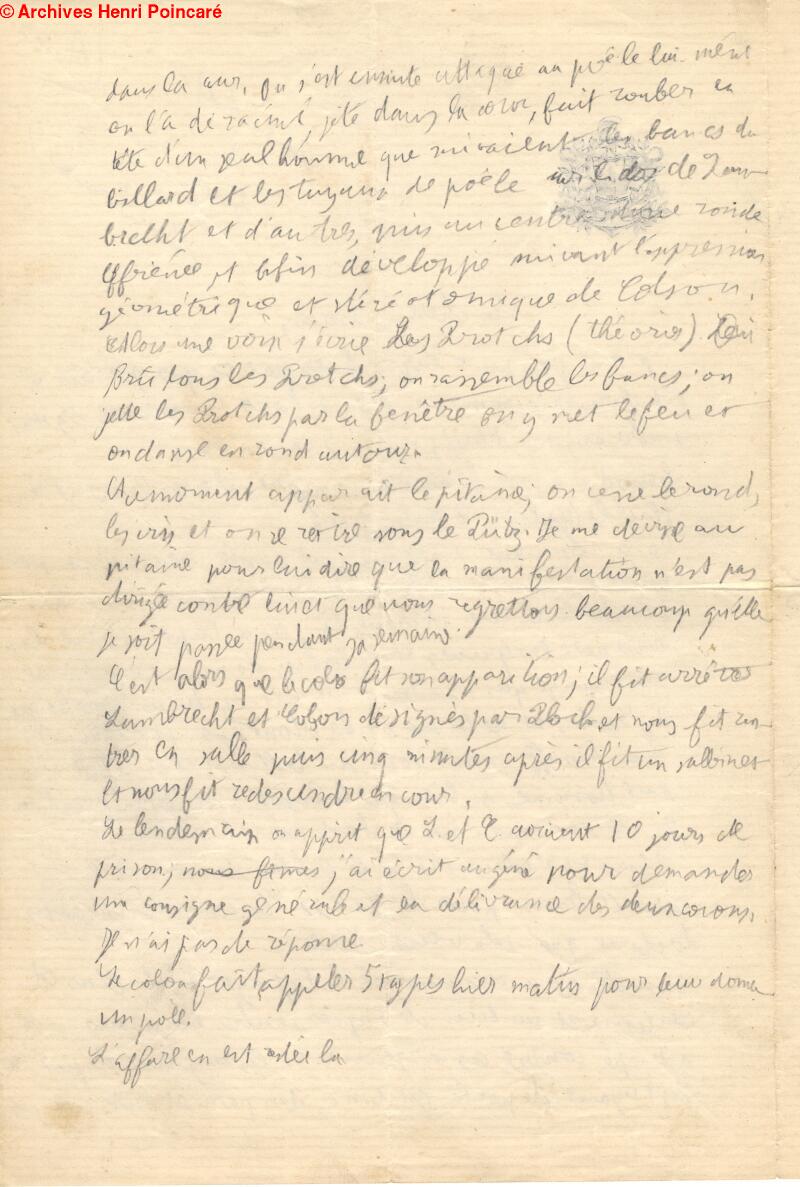 © Archives Henri Poincaré
dans la cour. On s'est ensuite attaqué au poêle lui-même
on l'a déraciné, jeté dans la cour, fait rouler en
tête d'un qui suivaient les bancs du
billard et les tuyaux de poële sur le dos de Lam-
brecht et d'autres, puis au centre d'une ronde
effrénée, et enfin développé suivant l'expression
géométrique et stéréotomique de Colson.
Alors une voix s'écrie Les Protchs (théorie)
tous les Protchs; on rassemble les bancs; on
jette les Protchs par la fenêtre on y met le feu et
on danse en rond autour.
A ce moment apparait le pitaine; on cesse le rond,
les cris et on se retire sous le Pütz. Je me dévise au
pitaine pour lui dire que la manifestation n'est pas
dirigée contre lui et que nous regrettons beaucoup qu'elle
se soit passée pendant sa semaine.
C'est alors que le colo fit son apparition; il fit arrêter
Lambrecht et Colson désignés par et nous fit ren-
trer en salle puis cinq minutes après il fit un
et nous fit redescendre en cour.
Le lendemain on apprit que L. et C. avaient 10 jours de
prison; nous fimes, j'ai écrit au géné pour demander
une consigne générale et la délivrance des deux cocons.
Je n'ai pas de réponse
Le colo a fait appeler 5 types hier matin pour leur donner
un poële.
L'affaire en est restée la